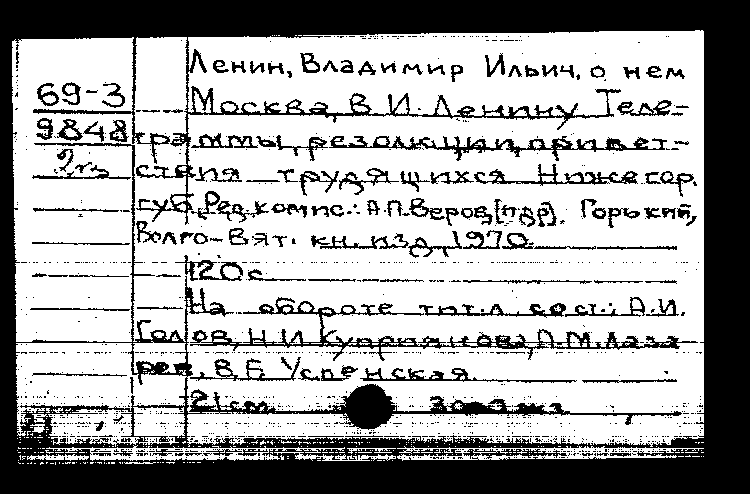 Ленин, Владимир Ильич, о нем
69-3
Москва, В.И. Ленину Теле-
9848
граммы, резолюции, привет-
2 кз
ствия трудящихся Нижегор.
губ. Ред. комис.: А.П. Веров, [и др]. Горький,
Волго-Вят. кн. изд, 1970.
120 с
На обороте тит. л. сост.: А.И.
Голов, Н.И Куприянова, А.М. Лаза-
рев, В.Б. Успенская.
21 см. 3000 экз